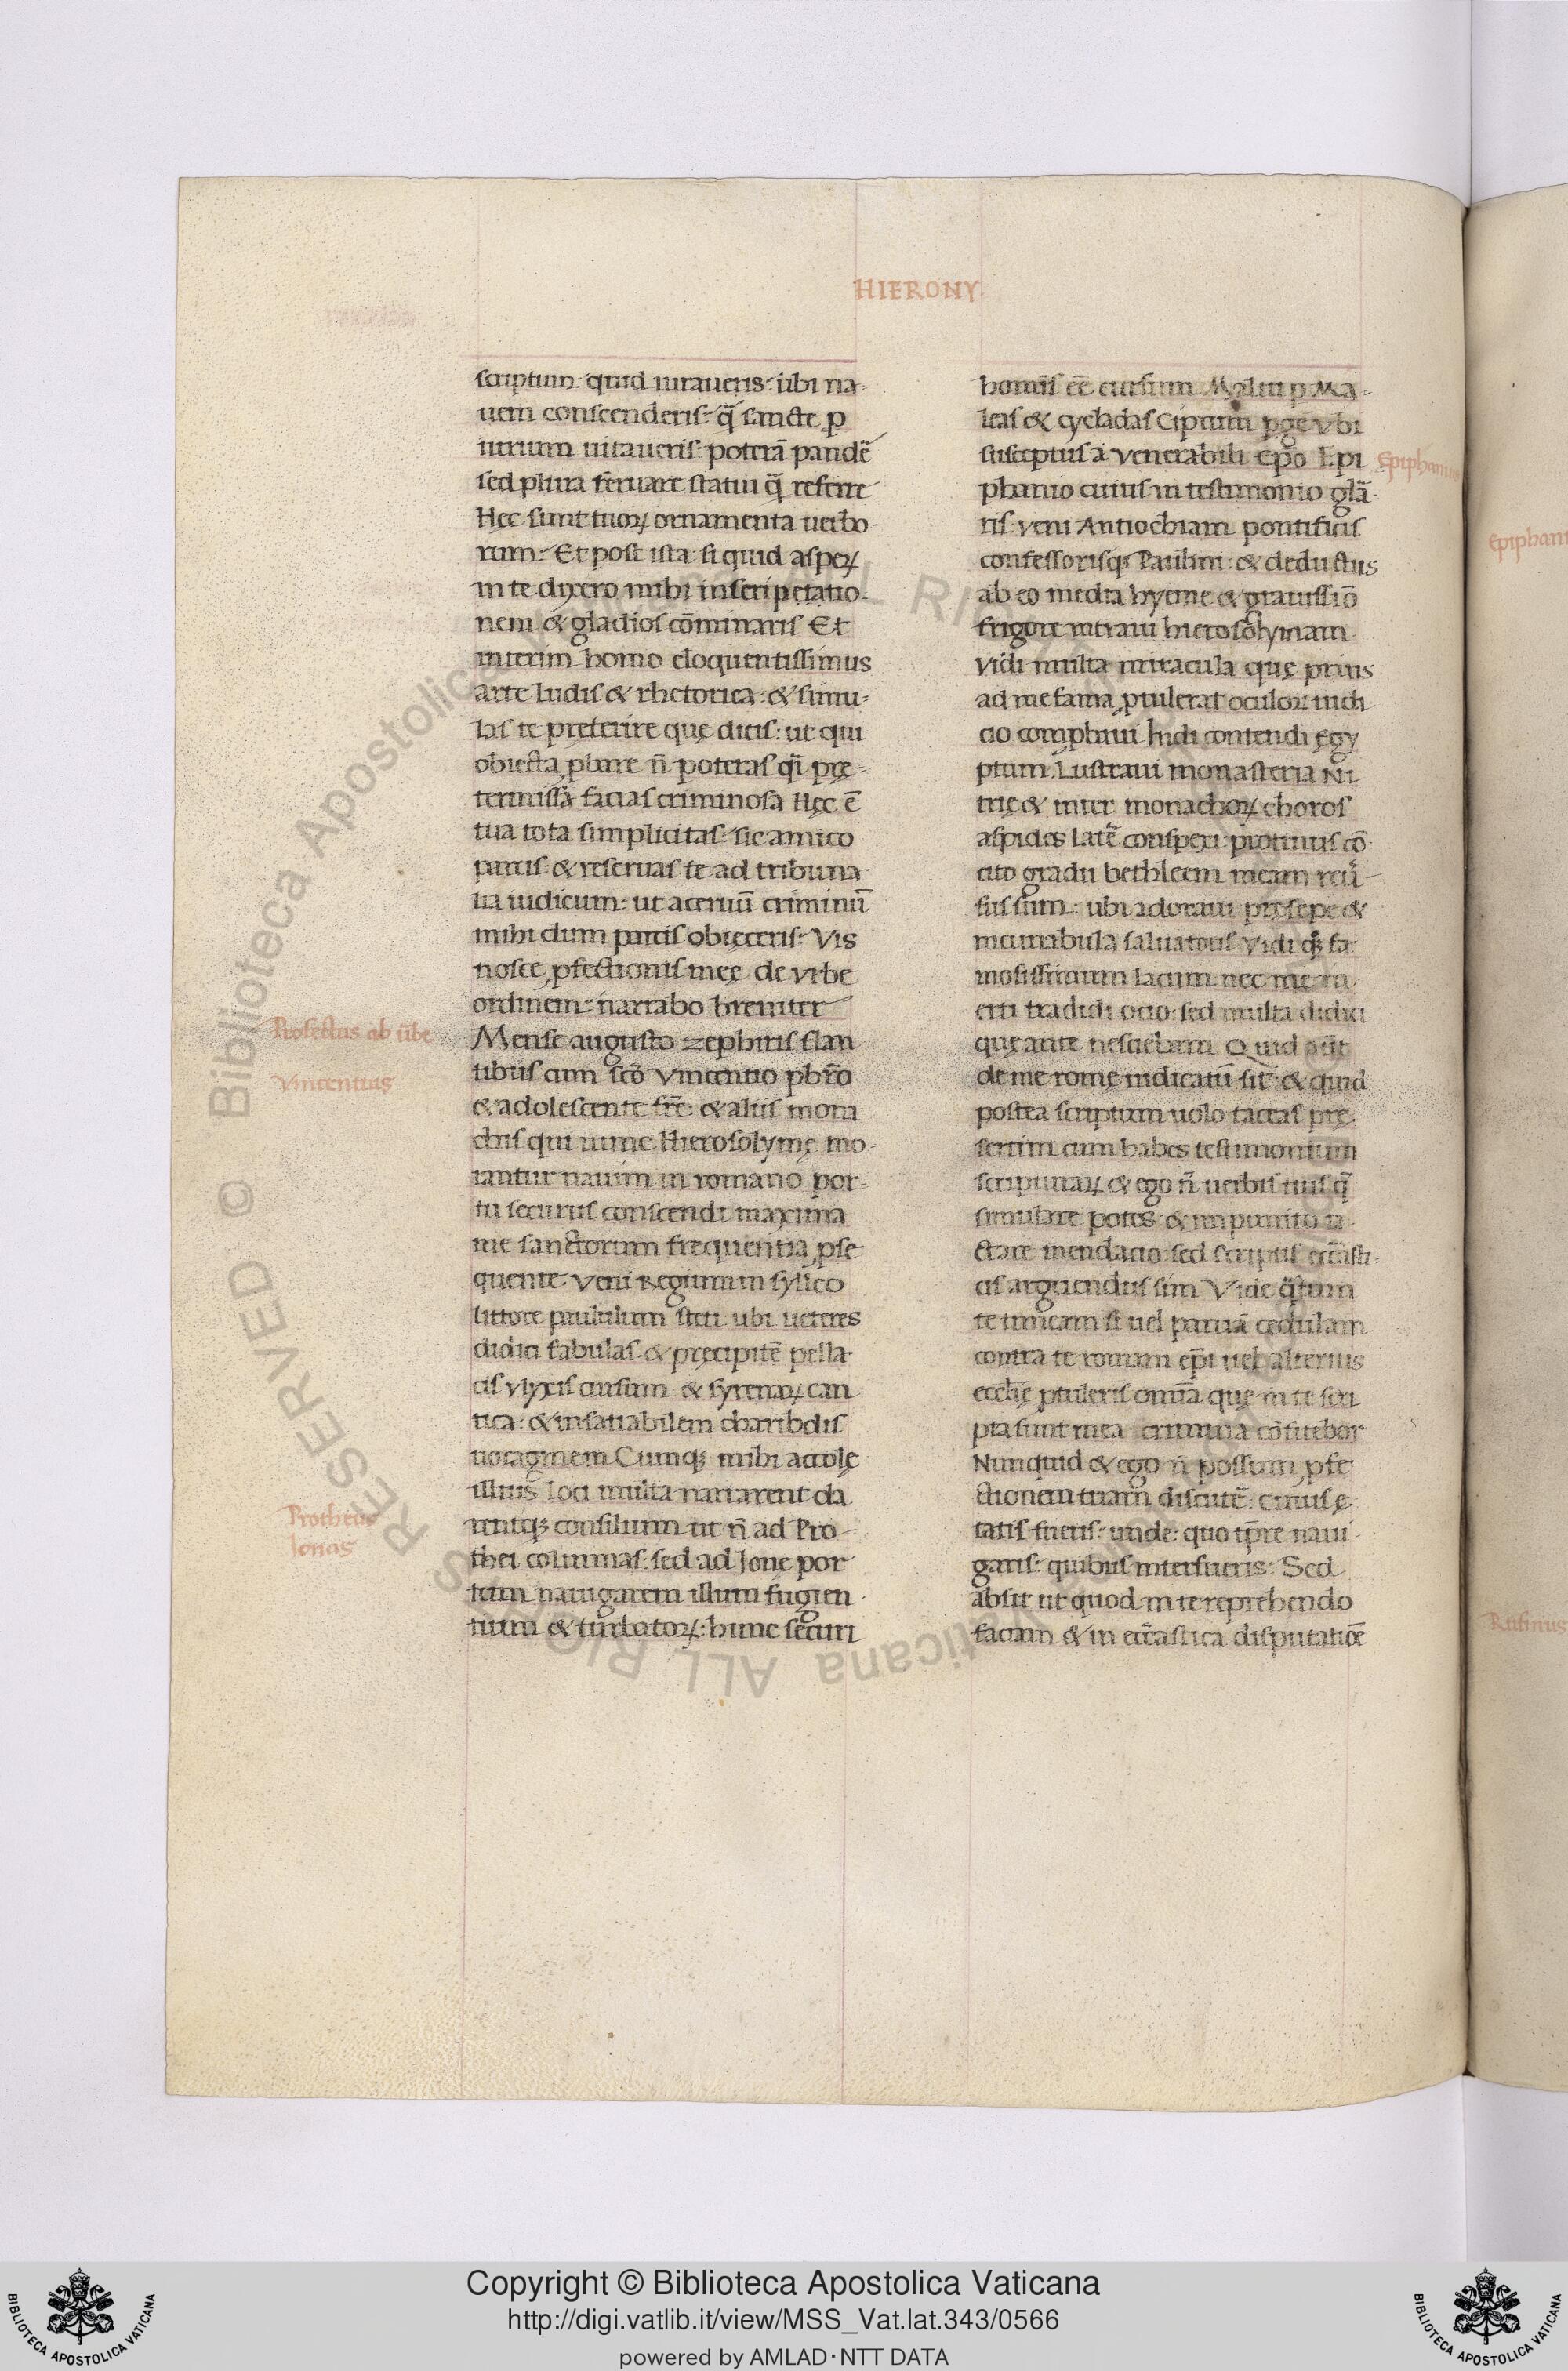 HIERONY
scriptum. quid iuraueris. ubi na-
uem conscenderis. q̃ sancte p̱
iurium uitaueris: poterā pandẽ
sed plura seruare statui q̃ referre
Hęc sunt tuoꝝ ornamenta uerbo-
rum. Et post ista si quid aspeꝝ
in te dixero mihi inscri petatio-
nem & gladios cōminaris Et
interim homo eloquentissimus
arte ludis & rhetorica: & simu-
las te pręterire quę dicis: ut qui
obiecta ꝓbare ñ poteras q̃i prę-
termissa facias criminosa Hęc ē
tua tota simplicitas: sic amico
parcis: & reseruas te ad tribuna-
lia iudicum: ut aceruū criminū
mihi dum parcis obieceris. Vis
nosce ꝓfectionis meę de Vrbe
ordinem: narrabo breuiter
Profectus ab ũbe
Mense augusto zephiris flan
tibus cum scō Vincentio pbrō
Vincentius
& adolescente frē: & aliis mona
chis qui nunc Hierosolymę mo-
rantur nauim in romano por-
tu securus conscendi maxima
me sanctorum frequentia ꝓse
quente. Veni Regium in syllęo
littore paululum steti ubi ueteres
didici fabulas & pręcipitē pella
cis Vlyxis cursum & syrenaꝝ can
tica: & insatiabilem charibdis
uoraginem Cumqꝫ mihi accolę
illius loci multa narrarent da
rentqꝫ consilium ut ñ ad Pro-
Protheus
thei columnas: sed ad Jone por
Jonas
tum nauigarem illum fugien-
tium & turbatoꝝ: hunc securi
hominis eē cursum Malui p Ma-
leas & cycladas Ciprum pgẽ Vbi
susceptus a venerabili Epō Epi
Epiphanius
phanio cuius in testimonio glā-
ris. veni Antiochiam pontificis
confessorisqꝫ Paulini: & deductus
ab eo media hyeme & grauissiō
frigore intraui hierosolymam
Vidi multa miracula quę prius
ad me fama ꝓtulerat oculoꝝ iudi
cio comprobaui Indi contendi ęgy
ptum. Lustraui monasteria Ni
trię & inter monachoꝝ choros
aspides latē conspexi: protinus cō-
cito gradu bethleem meam reũ-
sus sum: ubi adoraui pręsepe &
incunabula saluatoris Vidi qꝫ fa
mosissimum lacum nec me in
erti tradidi ocio: sed multa didici
quę ante nesciebam. Quid aũt
de me romę iudicatū sit: & quid
postea scriptum uolo taceas prę-
sertim cum habes testimonium
scripturaꝝ & ego ñ uerbis tuis q̃
simulare potes: & impunito ia-
ctare mendacio: sed scriptis ecc̄asti-
cis arguendus sim Vide q̃tum
te timeam si uel paruā cedulam
contra te romam epī uel alterius
ecclię ꝓtuleris omīa quę in te scri
pta sunt mea crimina cōfitebor
Nunquid & ego ñ possum ꝓfe
ctionem tuam discutẽ: cuius ę
tatis fueris. unde: quo tp̄re naui-
garis: quibus interfueris. Sed
absit ut quod in te reprehendo
faciam & in ecc̄astica disputatiōe
Epiphani
Rufinus
Copyright © Biblioteca Apostolica Vaticana
http://digi.vatlib.it/view/MSS_Vat.lat.343/0566
powered by AMLAD·NTT DATA